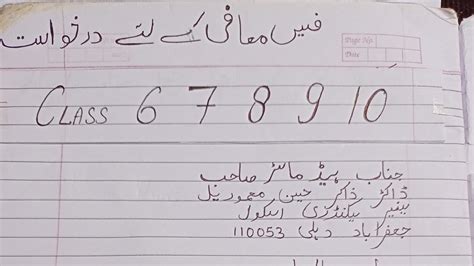 فیس معافی کے لئے درخواست
Page No.
Date
CLASS 6 7 8 9 10
جناب ہیڈ ماسٹر صاحب
ڈاکٹر ذاکر حسین میموریل
سینیر سیکنڈری اسکول
جعفرآباد دہلی 110053